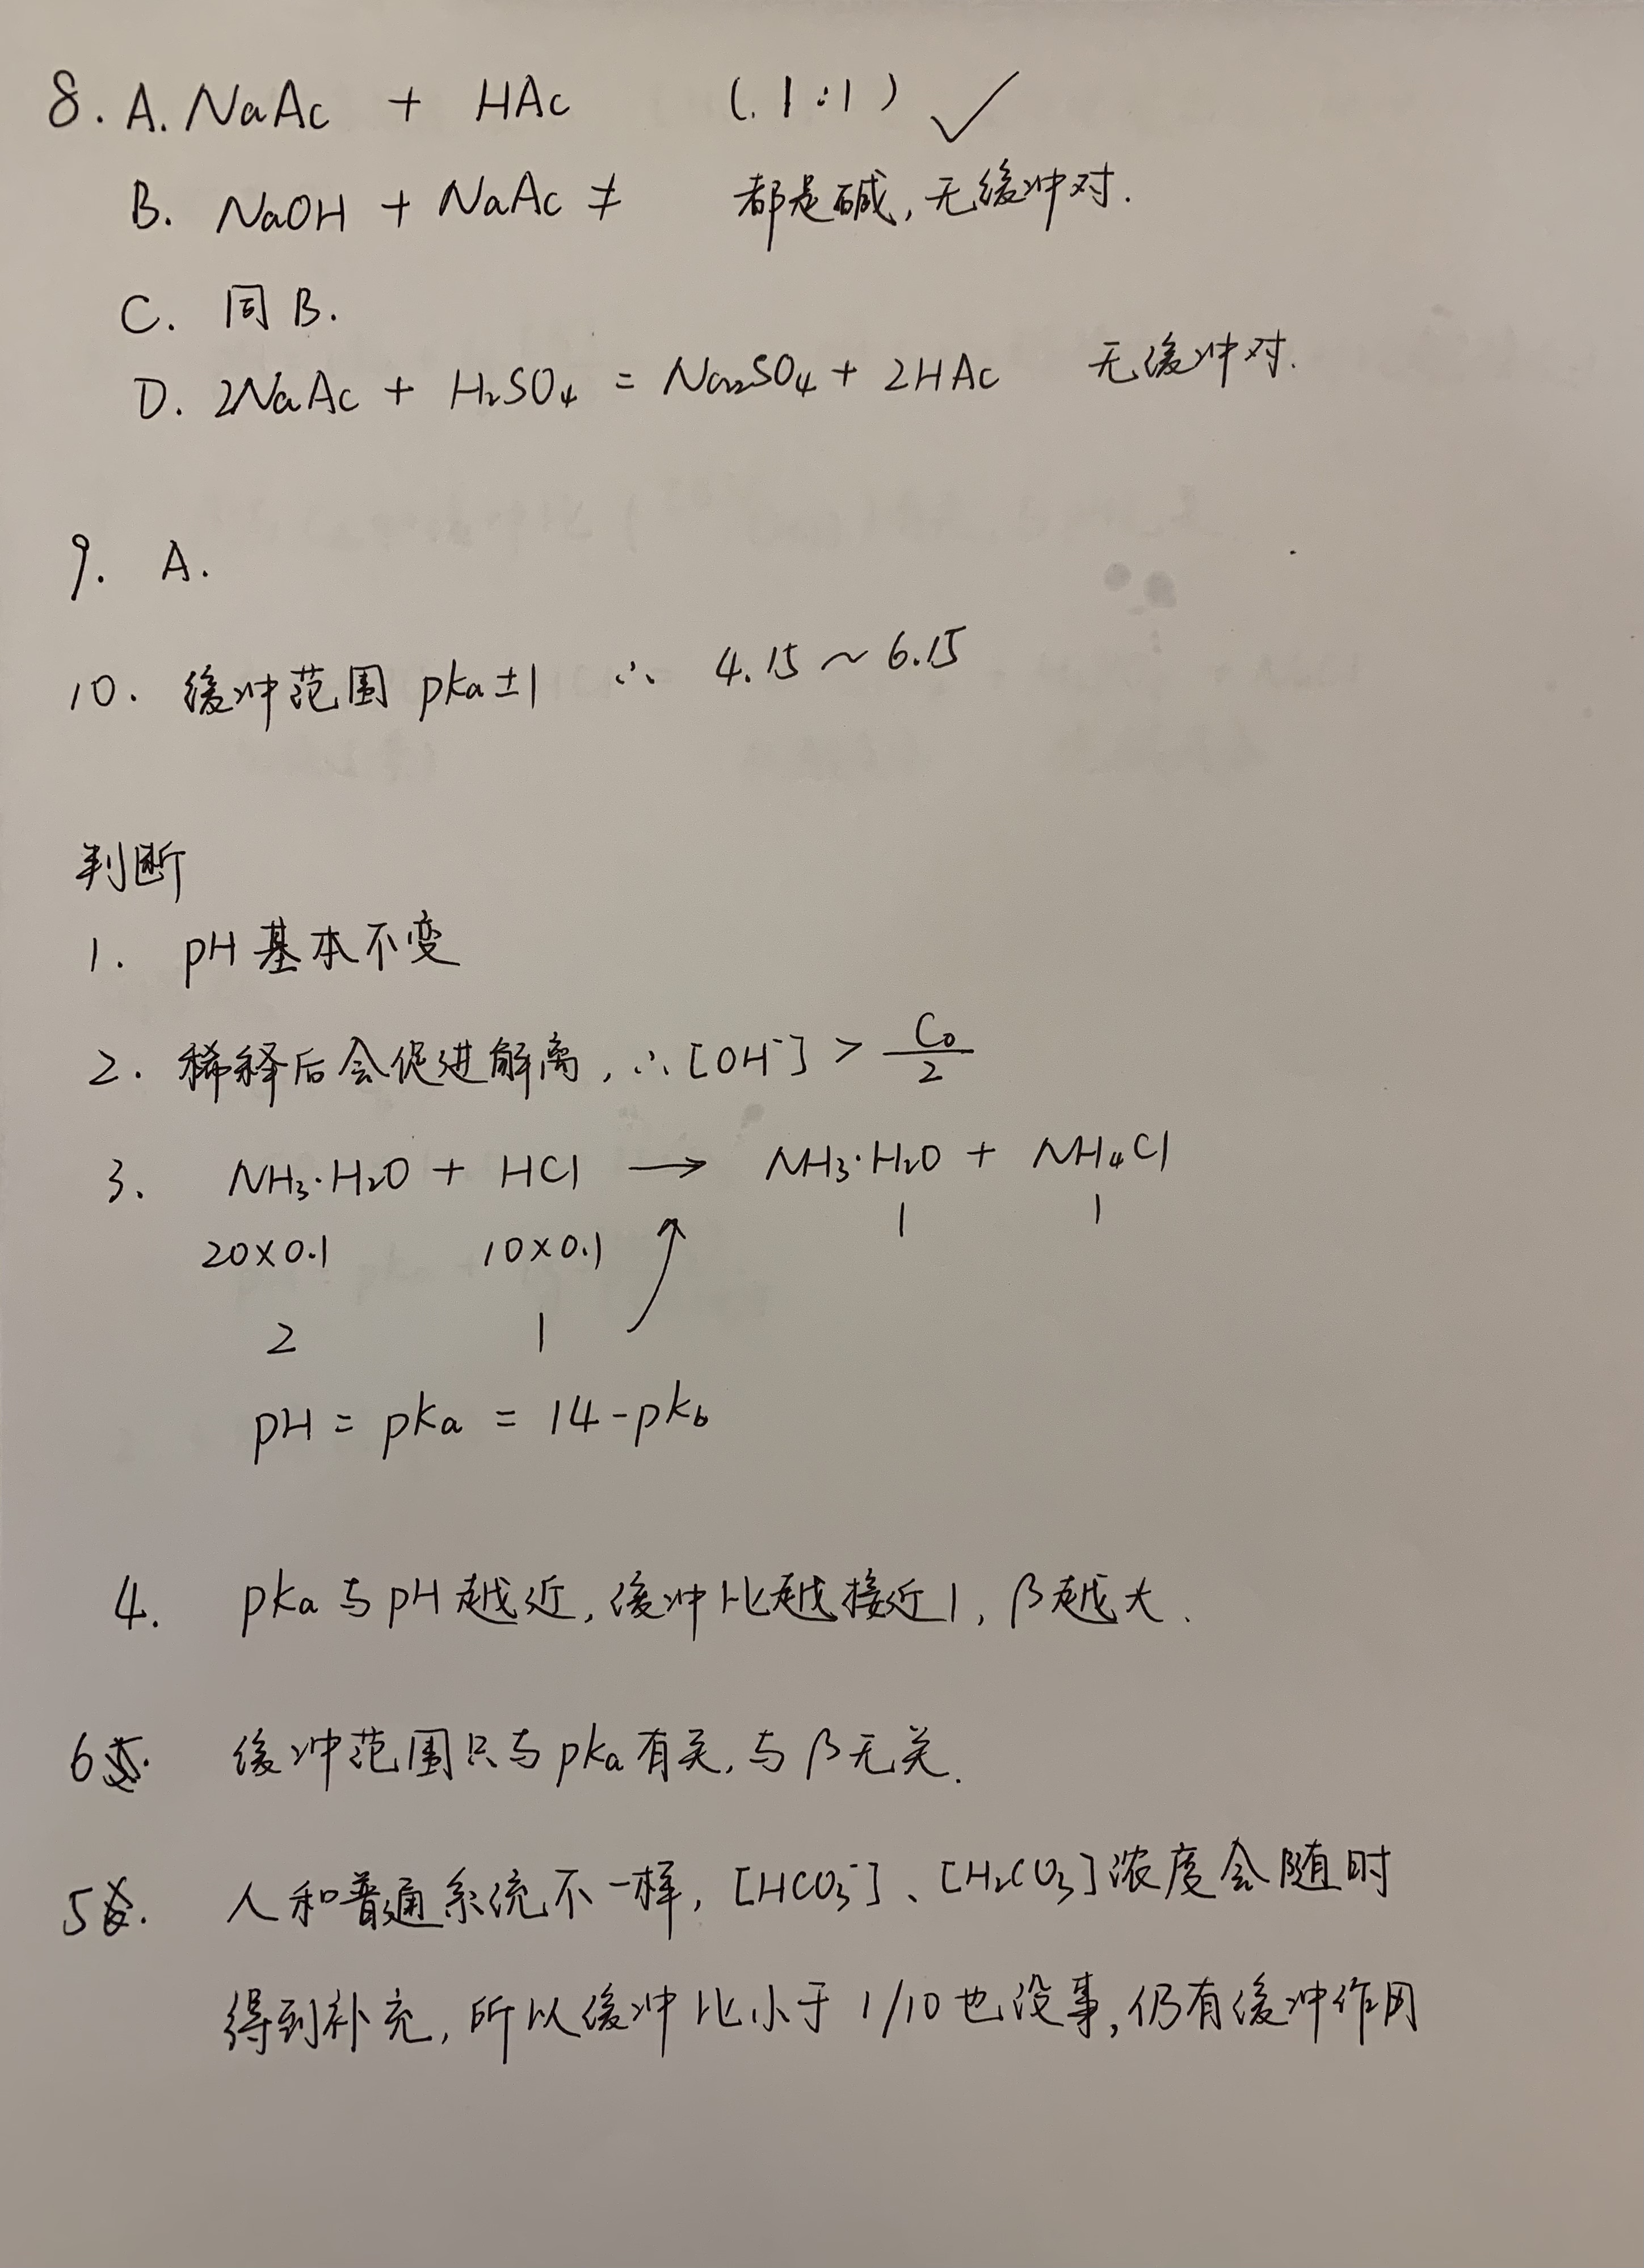 8. A. NaAc + HAc (1:1) ✓
B. NaOH + NaAc ≠ 都是碱,无缓冲对.
C. 同B.
D. 2NaAc + H₂SO₄ = Na₂SO₄ + 2HAc 无缓冲对.
9. A.
10. 缓冲范围 pka±1 ∴ 4.15～6.15
判断
1. pH基本不变
2. 稀释后会促进解离,∴[OH⁻] > C₀/2
3. NH₃·H₂O + HCl → NH₃·H₂O + NH₄Cl
1 1
20×0.1 10×0.1
2 1
pH = pka = 14-pkb
4. pka与pH越近,缓冲比越接近1,β越大.
6. 缓冲范围只与pka有关,与β无关.
5. 人和普通系统不一样,[HCO₃⁻]、[H₂CO₃]浓度会随时
得到补充,所以缓冲比小于1/10也没事,仍有缓冲作用